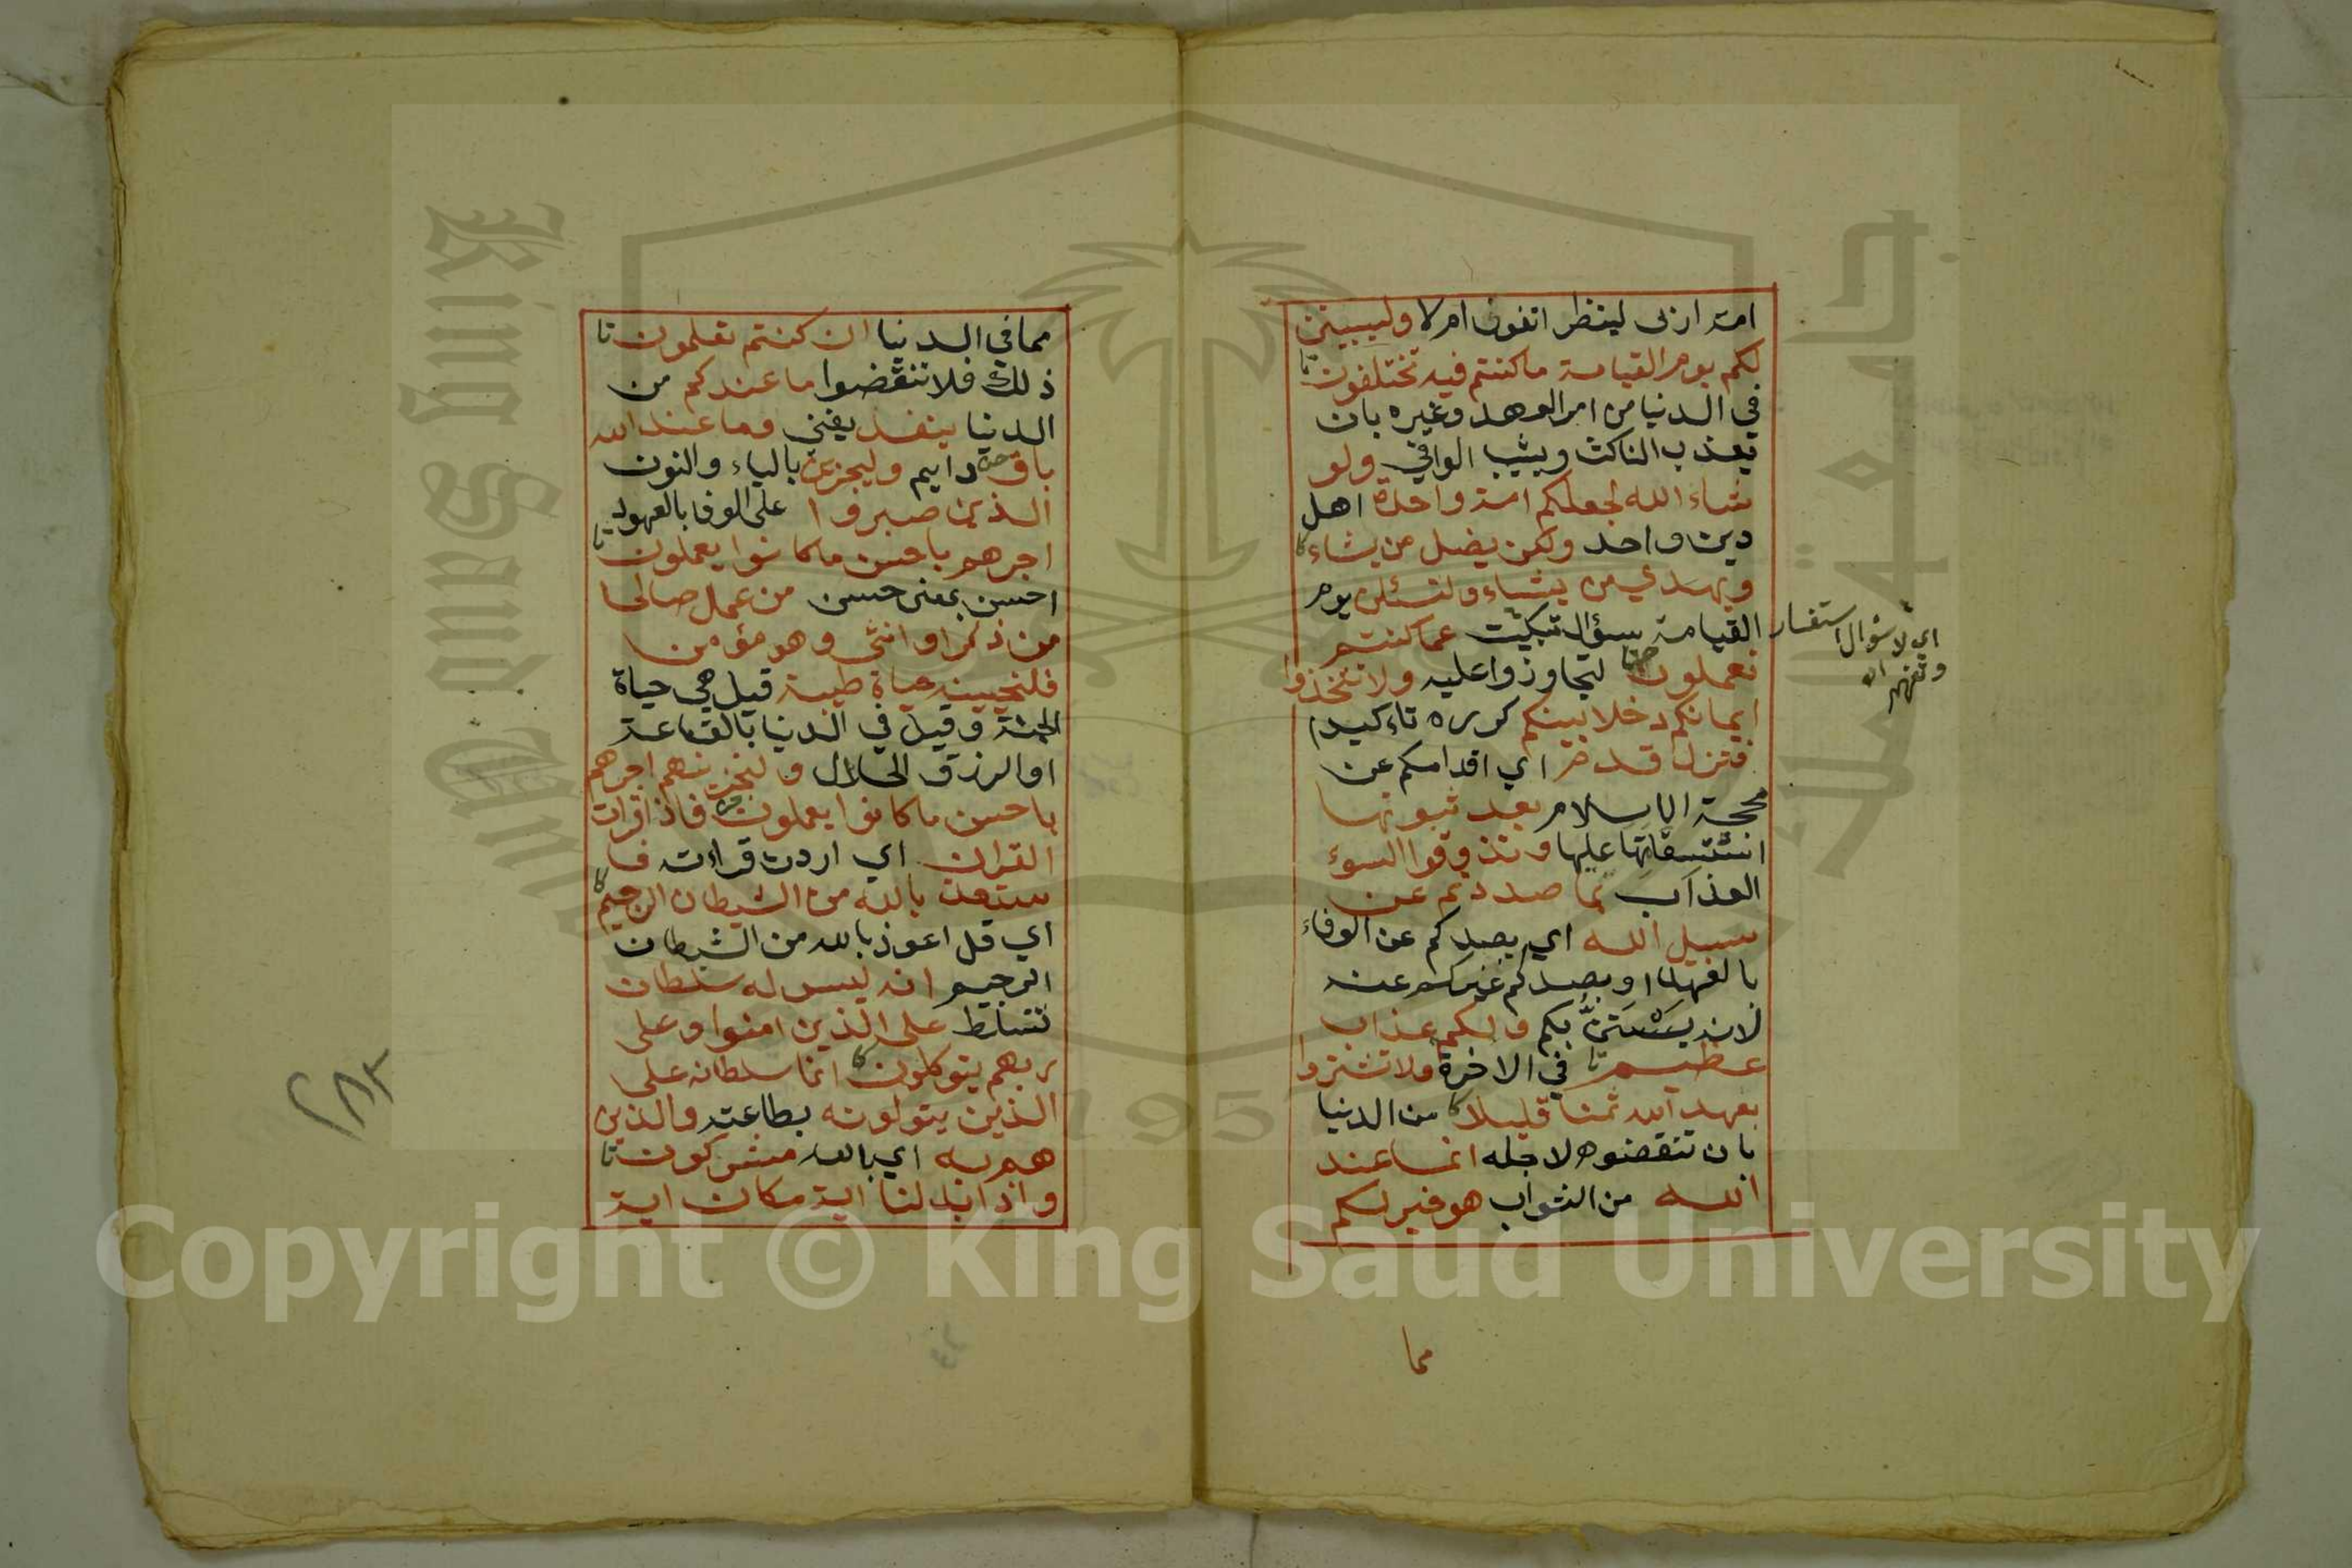 امة اربى لينظر اتفون ام لا وليبينن
لكم يوم القيامة ما كنتم فيه تختلفون تا
في الدنيا من امر العهد وغيره بان
يعذب الناكث ويثيب الوافي ولو
شاء الله لجعلكم امة واحدة اهل
دين واحد ولكن يضل من يشاء كا
ويهدي من يشاء ولتسئلن يوم
القيامة سؤال تبكيت عما كنتم
اي لا سؤال استفسار
وتفهم اه
تعملون لتجاوزوا عليه ولا تتخذوا
ايمانكم دخلا بينكم كرره تاءكيدا
فتزل قدم اي اقدامكم عن
محجة الاسلام بعد ثبوتها
استقامتها عليها وتذوقوا السوء
العذاب بما صددتم عن
سبيل الله اي بصدكم عن الوفاء
بالعهد او بصدكم غيركم عنه
لانه يستن بكم ولكم عذاب
عظيم تا في الاخرة ولا تشتروا
بعهد الله ثمنا قليلا كا من الدنيا
بان تنقضوه لاجله انما عند
الله من الثواب هو خير لكم
مما
مما في الدنيا ان كنتم تعلمون تا
ذلك فلا تنقضوا ما عندكم من
الدنيا ينفد يفنى وما عند الله
باق دايم وليجزين بالياء والنون
الذين صبروا على الوفا بالعهود
اجرهم باحسن ما كانوا يعملون تا
احسن بمعنى حسن من عمل صالحا
من ذكر او انثى وهو مؤمن
فلنحيينه حياة طيبة قيل هي حياة
الجنة وقيل في الدنيا بالقناعة
او الرزق الحلال ولنجزينهم اجرهم
باحسن ما كانوا يعملون فاذا قرات
القران اي اردت قراءته فا
ستعذ بالله من الشيطان الرجيم كا
اي قل اعوذ بالله من الشيطان
الرجيم انه ليس له سلطان
تسلط على الذين امنوا وعلى
ربهم يتوكلون كا انما سلطانه على
الذين يتولونه بطاعته والذين
هم به اي بالله مشركون تا
واذا بدلنا اية مكان اية
King Saud University
جامعة الملك سعود
1957
Copyright © King Saud University